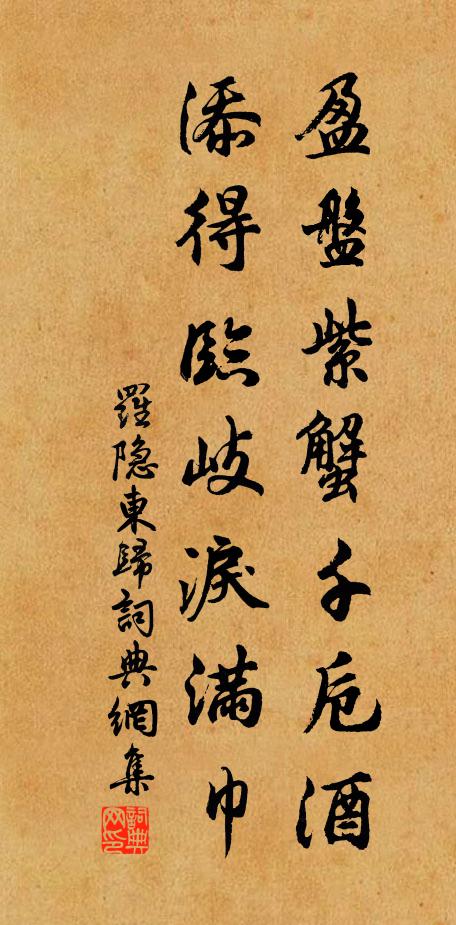 盈盤紫蟹千卮酒
添得臨岐淚滿巾
羅隐東歸詞典網集
詞典网印